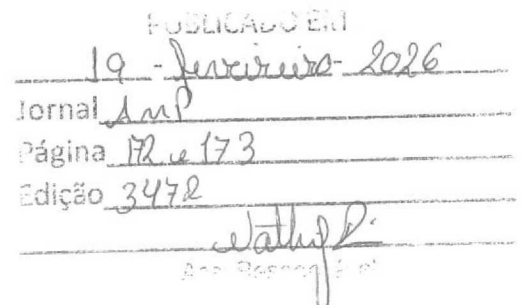 PUBLICADO EM
19 - fevereiro - 2026
Jornal AMP
Página 172 e 173
Edição 3472